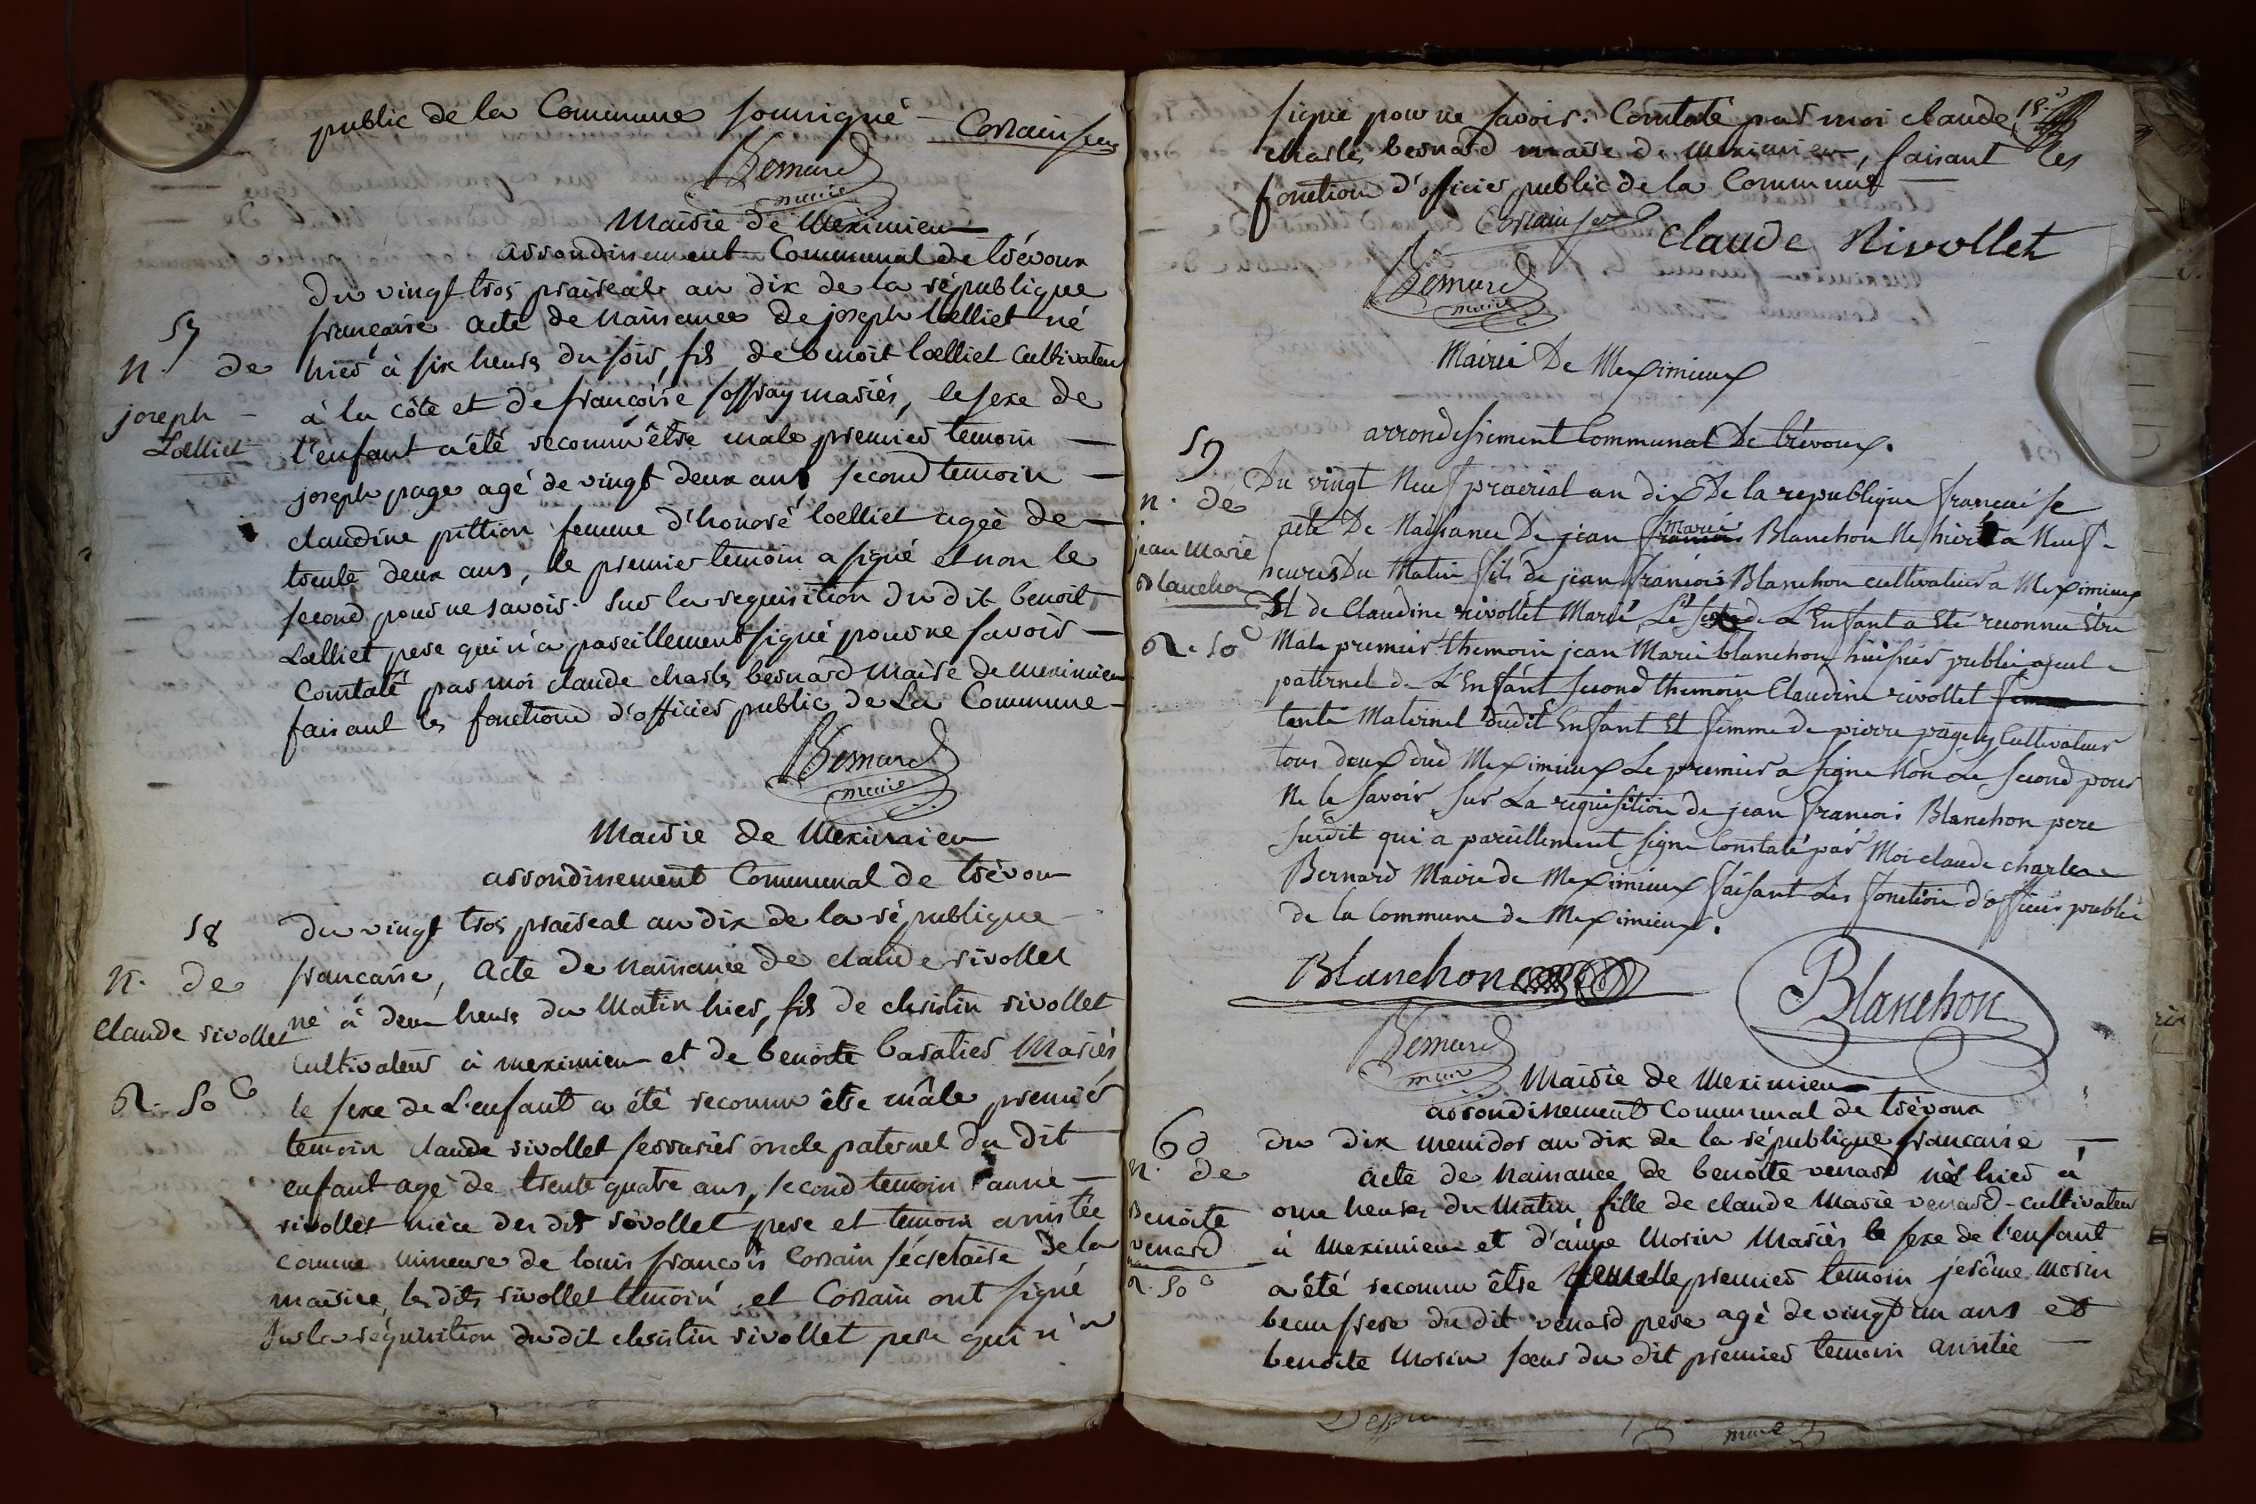 public de la Commune sousigné — Cossain secr
CBernard
maire
Maisie de Meximieu
arrondissement Communal de trévoux
Du vingt trois praireale an dix de la république
francaise acte de naissance de joseph loelliet né
57
n. de
joseph —
Loelliet
hier à six heures du soir, fils de benoit loelliet Cultivateur
à la côte et de francoise soffray mariés, le sexe de
l'enfant a été reconnu être male premier temoin —
joseph page agé de vingt deux ans second temoin —
claudine pittion femme d'honoré loelliet agée de —
trente deux ans, le premier temoin a signé et non le
second pour ne savoir. Sur la requisition du dit benoit
Loelliet pere qui n'a pareillement signé pour ne savoir —
Constaté par moi claude charles bernard maire de meximieu
faisant les fonctions d'officier public de La Commune —
CBernard
maire
Mairie de Meximieu
arrondissement Communal de trévou
58
n. de
Claude rivollet
R. 50 c
Du vingt trois praireal an dix de la république —
francaise, Acte de naissance de claude rivollet
né à deux heures du Matin hier, fils de christin rivollet
Cultivateur à meximieu et de benoite baratier Mariés
le sexe de L'enfant a été reconnu être mâle premier
temoin claude rivollet serrurier oncle paternel du dit
enfant agé de trente quatre ans, second temoin anne —
rivollet nièce du dit rivollet pere et temoin assistée
comme mineure de louis francois Cossain sécretaire de la
mairie, les dits rivollet temoin et Cossain ont signé
Sur la réquisition du dit christin rivollet pere qui n'a
signé pour ne savoir. Constaté par moi claude
charles bernard maire de Meximieu, faisant les
fonction d'officier public de la Commune —
Cossain secr
claude Rivollet
CBernard
maire
Mairie De Meximieux
arrondissement Communal De trévoux.
59
n. de
jean Marie
Blanchon
R. 50 c
Du vingt Neuf prairial an dix De la republique francaise
acte De Naissance De jean francois marie Blanchon Ne hier a Neuf
heures Du Matin fils de jean francois Blanchon cultivateur a Meximieux
Et de Claudine rivollet Marié, Le sexe de L'Enfant a Eté reconnu Etre
Male premier themoin jean Marie blanchon huissier public ayeul
paternel de L'Enfant second themoin Claudine rivollet
tante Maternel dudit Enfant Et femme de pierre pagey Cultivateur
tous deux dud Meximieux Le premier a signe Non Le second pour
Ne le savoir sur La requisition de jean francois Blanchon pere
surdit qui a pareillement signe Constaté par Moi claude charles
Bernard Maire de Meximieux faisant Les fonction d'officier public
de la Commune de Meximieux.
Blanchon
Blanchon
CBernard
maire
Mairie de Meximieu
arrondissement Communal de trévoux
60
n. de
Benoite
venard
R. 50 c
du dix messidor an dix de la république francaise —
Acte de naissance de benoite venard née hier à
onze heures du Matin fille de claude Marie venard – cultivateur
à Meximieu et d'anne Morin Mariés le sexe de l'enfant
a été reconnu être femelle premier temoin jerôme Morin
beau frere du dit venard pere agé de vingt un ans et
benoite Morin sœur du dit premier temoin assistée —